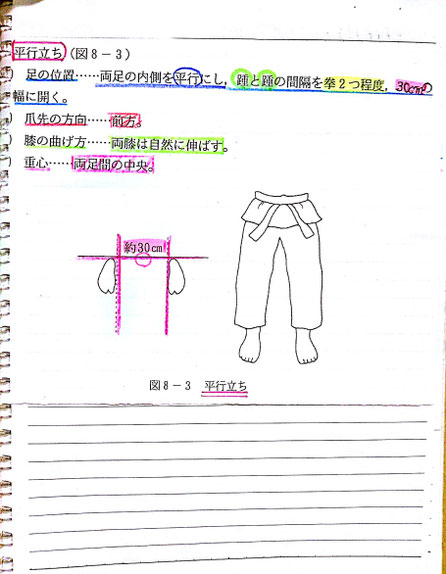 平行立ち(図8-3)
) 足の位置……両足の内側を平行にし,踵と踵の間隔を拳2つ程度,30cmの
幅に開く。
) 爪先の方向……前方。
) 膝の曲げ方……両膝は自然に伸ばす。
) 重心……両足間の中央。
約30cm
図8-3 平行立ち